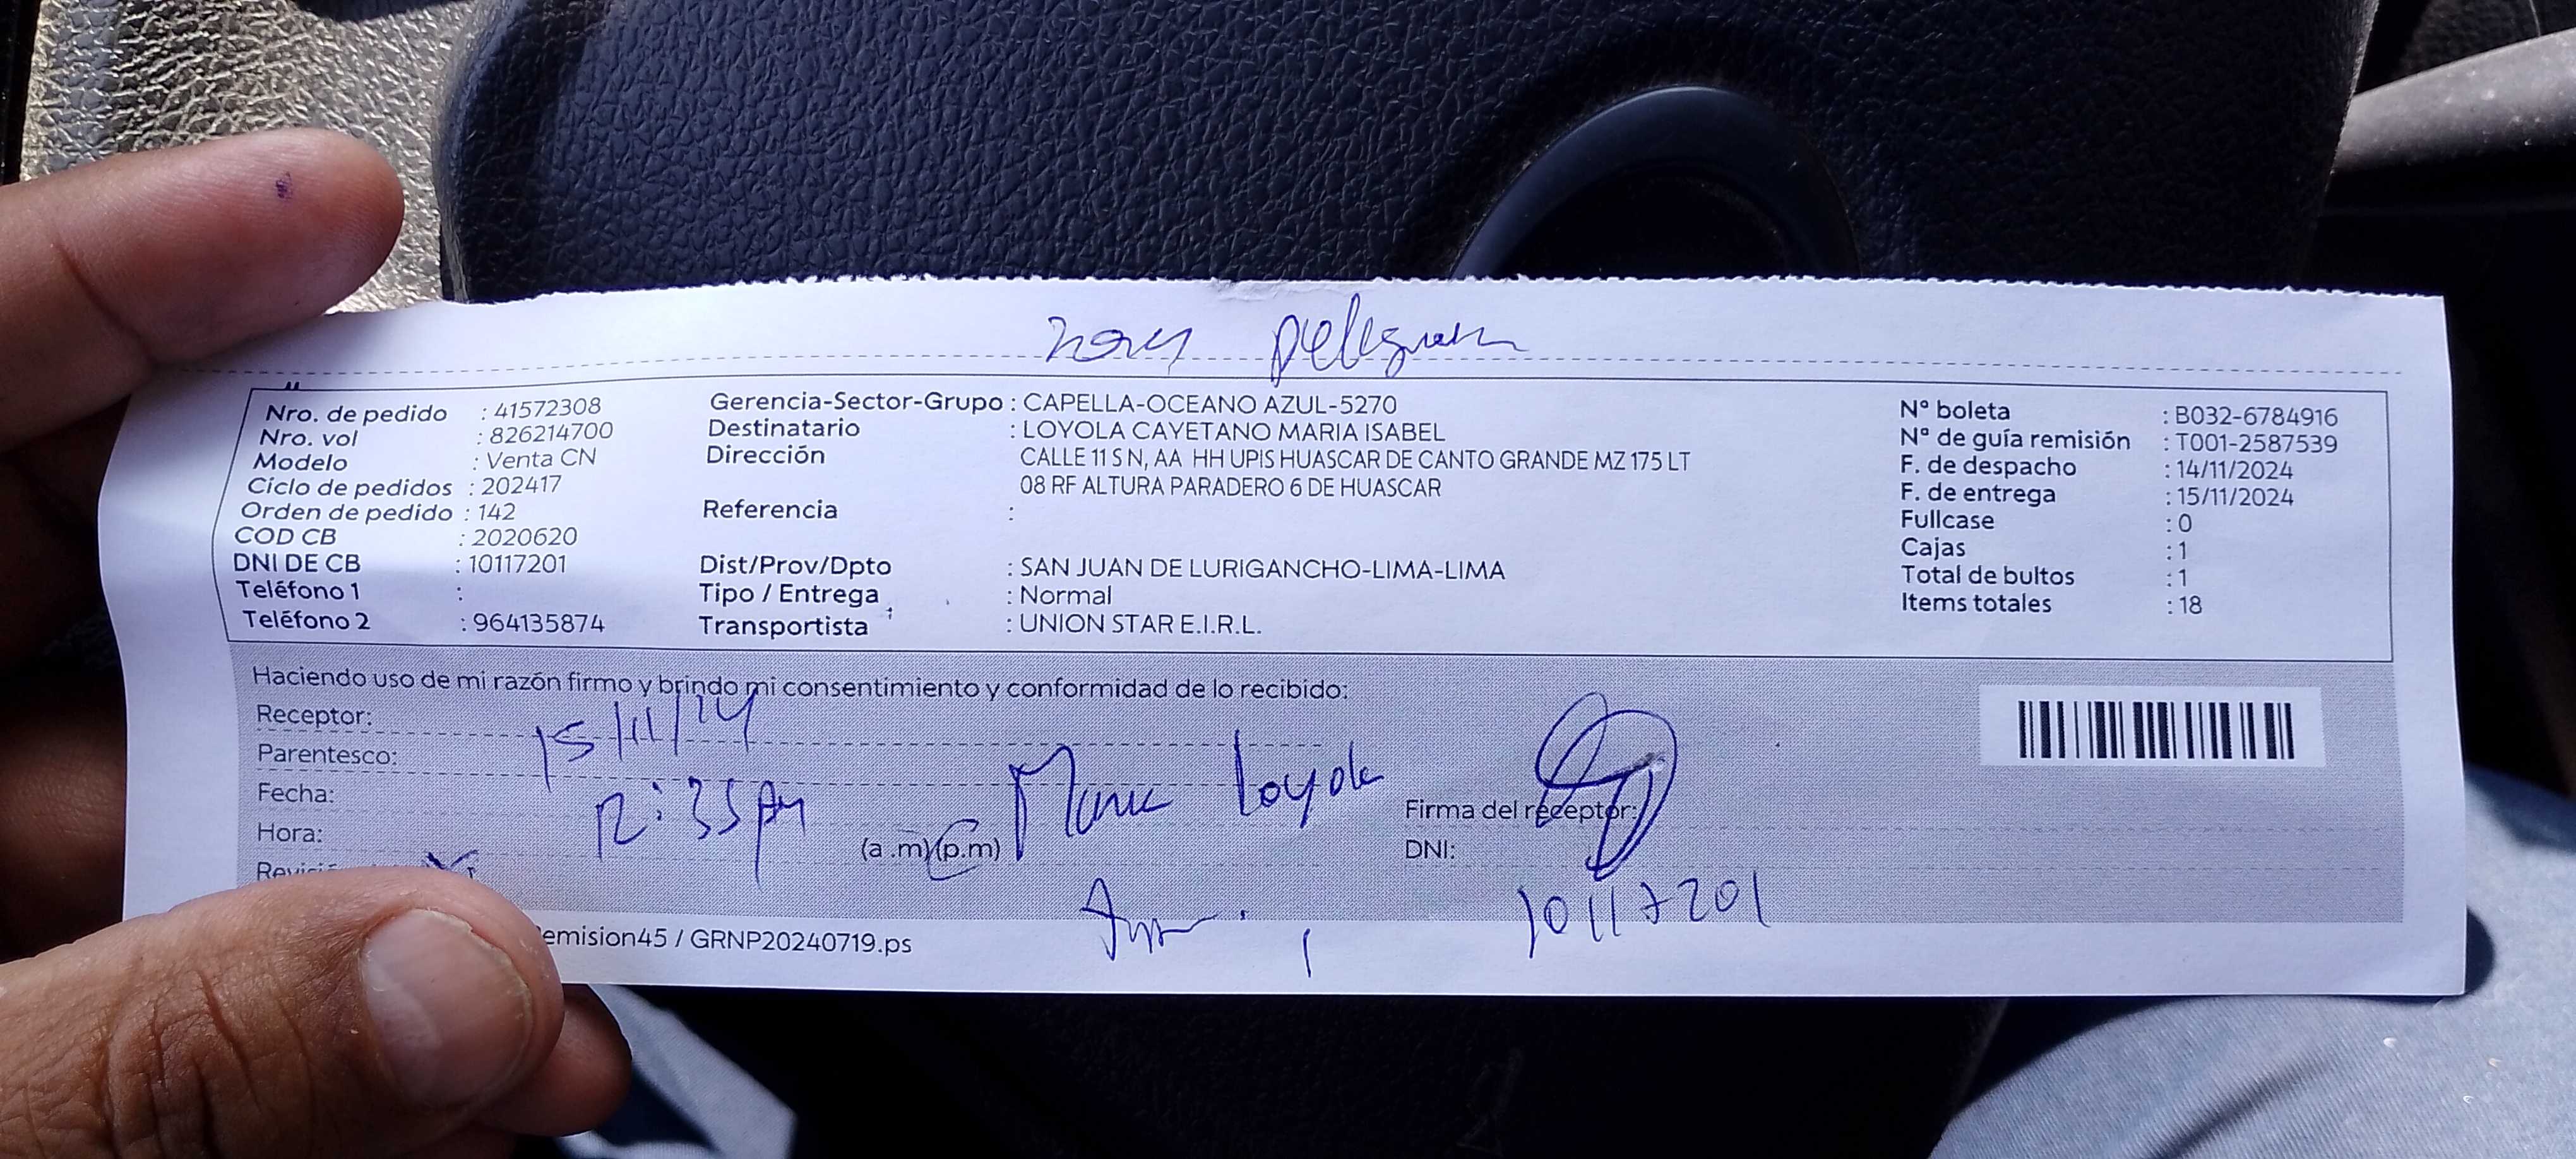 Nro. de pedido : 41572308
Nro. vol : 826214700
Modelo : Venta CN
Ciclo de pedidos : 202417
Orden de pedido : 142
COD CB : 2020620
DNI DE CB : 10117201
Teléfono 1 :
Teléfono 2 : 964135874
Gerencia-Sector-Grupo : CAPELLA-OCEANO AZUL-5270
Destinatario : LOYOLA CAYETANO MARIA ISABEL
Dirección CALLE 11 S N, AA HH UPIS HUASCAR DE CANTO GRANDE MZ 175 LT
08 RF ALTURA PARADERO 6 DE HUASCAR
Referencia :
Dist/Prov/Dpto : SAN JUAN DE LURIGANCHO-LIMA-LIMA
Tipo / Entrega : Normal
Transportista : UNION STAR E.I.R.L.
Nº boleta : B032-6784916
Nº de guía remisión : T001-2587539
F. de despacho : 14/11/2024
F. de entrega : 15/11/2024
Fullcase : 0
Cajas : 1
Total de bultos : 1
Items totales : 18
Haciendo uso de mi razón firmo y brindo mi consentimiento y conformidad de lo recibido:
Receptor:
15/11/24
Parentesco:
Fecha:
12:35 pm
Hora:
(a .m) (p.m)
Maria Loyola
Firma del receptor:
DNI:
10117201
emision45 / GRNP20240719.ps